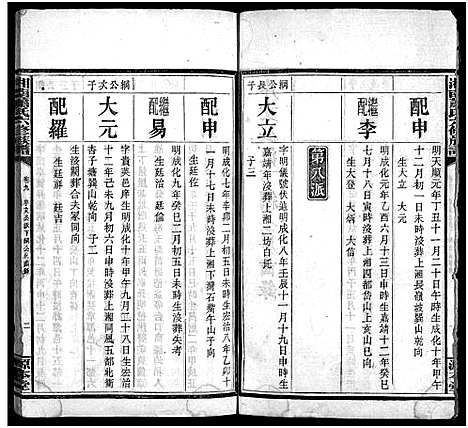 配申
明天順元年丁丑十一月二十日辰時生成化十年甲午
十二月初一日未時沒葬上湘長嶺坡巽山乾向
生大立 大元
繼配李
明成化元年乙酉六月十三日申時生嘉靖十二年癸巳
七月十八日寅時沒葬上湘四都岱山上亥山巳向
生大登 大炳 大信
第八派
綱公長子
大立
字明儀號伏波明成化八年壬辰十一月十九日申時生
嘉靖年沒葬上湘二坊白托
子三
配申
明成化七年辛卯二月初五日未申時生宏治八年乙卯十
一月十七日未時沒葬上湘下灣石觜午山子向
生廷佐
繼配易
明成化九年癸巳二月初五日未時生沒葬失考
生廷治 廷倫
綱公次子
大元
字貴英邑庠生明成化十年甲午九月二十八日生宏治
十二年己未九月初六日申時沒葬上湘同風五都北衝
杏子塘巽山乾向 子二
配羅
生沒闕葬合夫冢同向
生廷爵 廷吉
卷九
二